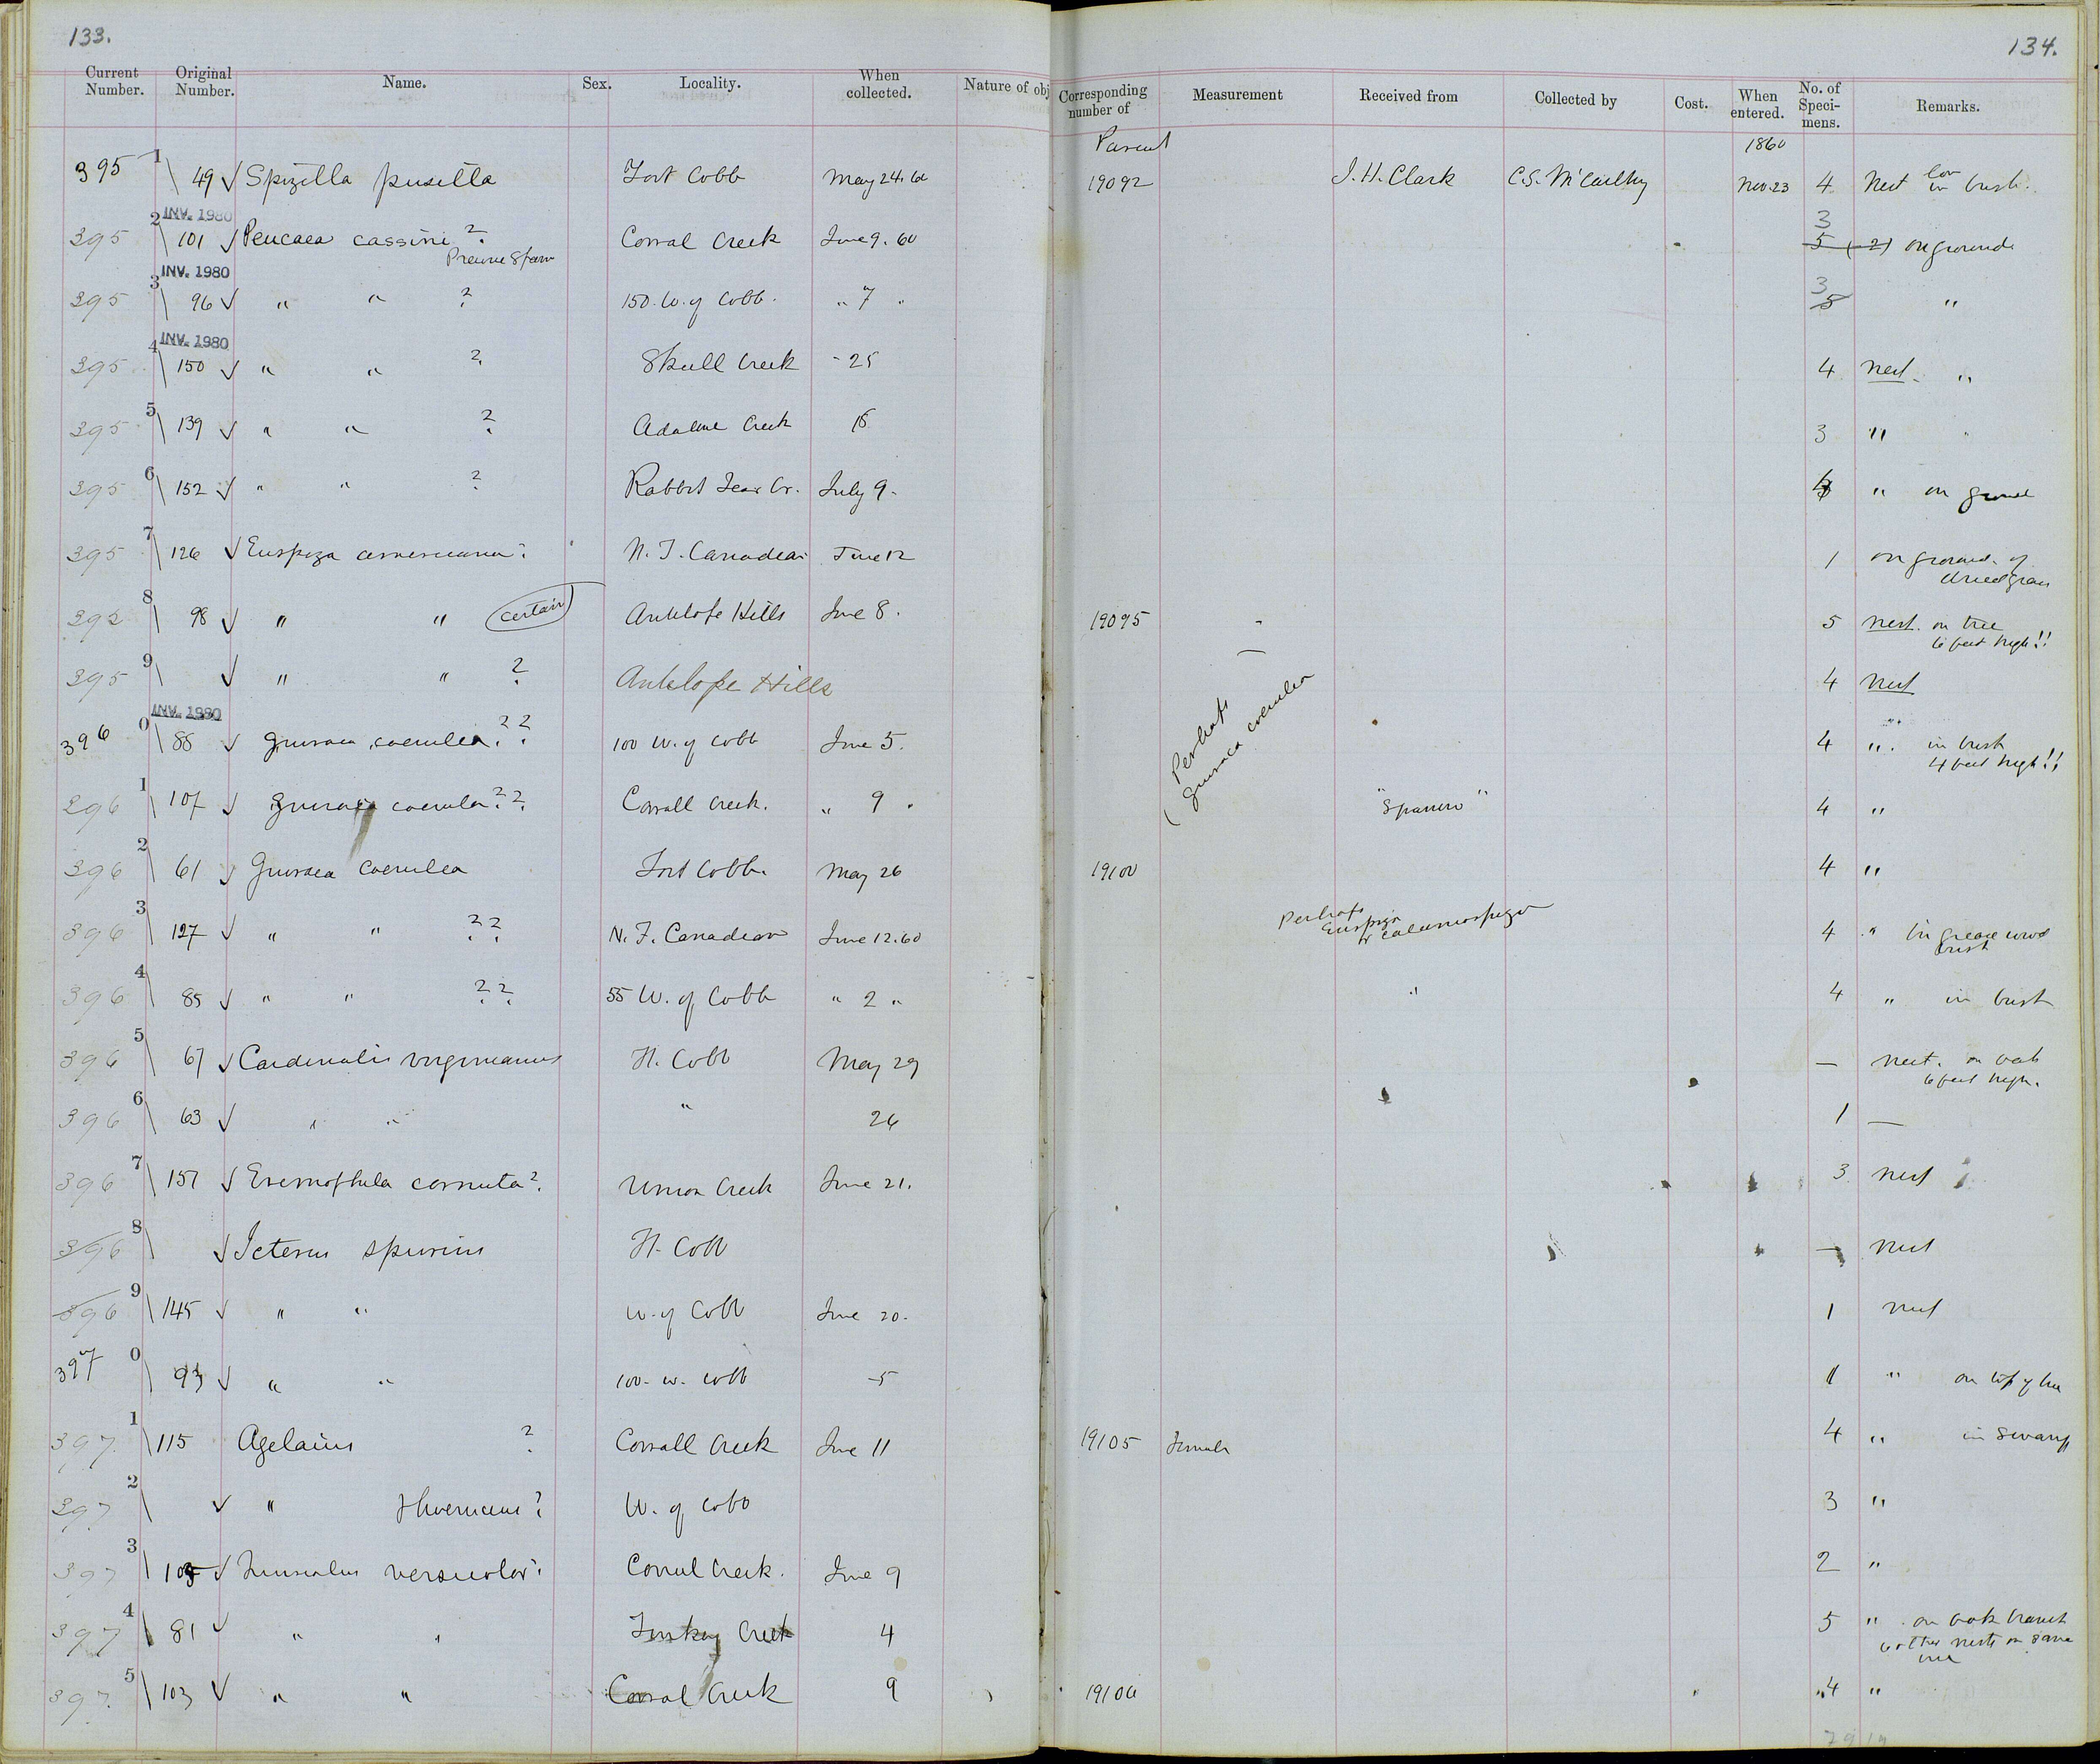 133.
134.
Current Number. Original Number. Name. Sex. Locality. When collected. Nature of obj Corresponding number of Measurement Received from Collected by Cost. When entered. No. of Speci-mens. Remarks.
Parent 1860
395 1 49 √ Spizella pusilla Fort Cobb May 24. 60 19092 J. H. Clark C.S. McCarthy Nov. 23 4 Nest low in bush.
INV. 1980
395 2 101 √ Peucaea cassini ? Corral Creek June 9. 60 3 5 (2) on ground
Prairie Sparr
INV. 1980
395 3 96 √ " " ? 150. W. of Cobb. " 7 " 3 5 "
INV. 1980
395 4 150 √ " " ? Skull Creek - 25 4 Nest - "
395 5 139 √ " " ? Creek 18 3 " "
395 6 152 √ " " ? Rabbit Ear Cr. July 9. " on ground
395 7 126 √ Euspiza americana ? N. F. Canadian June 12 1 on ground. of dried grass
395 8 98 √ " " certain Antelope Hills June 8. 19095 5 nest. on tree
6 feet high!!
395 9 √ " " ? Antelope Hills 4 Nest
INV. 1980
396 0 88 √ Guiraca caerulea ?? 100 W. of Cobb June 5. (Perhaps Guiraca coerulea 4 " in bush
4 feet high!!
396 1 107 √ Guiraca coerulea ?? Corrall Creek. " 9 . "Sparrow" 4 "
396 2 61 √ Guiraca coerulea Fort Cobb. May 26 19100 4 "
396 3 127 √ " " ?? N. F. Canadian June 12. 60 Perhaps Euspiza or calamospiza 4 " in grease wood
bush
396 4 85 √ " " ?? 55 W. of Cobb " 2 " " 4 " in bush
396 5 67 √ Cardinalis virginianus Ft. Cobb May 29 — Nest. on oak
6 feet high.
396 6 63 √ " " " 26 1 —
396 7 157 √ Eremophila cornuta ? Union Creek June 21. 3 Nest
396 8 √ Icterus spurius Ft. Cobb — Nest
396 9 145 √ " " W. of Cobb June 20. 1 Nest
397 0 93 √ " " 100. W. Cobb -5 1 " on top of tree
397 1 115 Agelaius ? Corrall Creek June 11 19105 Female 4 " in swamp
397 2 √ " Phoeniceus ? W. of Cobb 3 "
397 3 105 √ Quiscalus versicolor ? Corral Creek. June 9 2 "
397 4 81 √ " " Turkey Creek 4 5 " on oak branch
6 other nests on same
tree
397 5 103 √ " " Corral Creek 9 19106 4 "